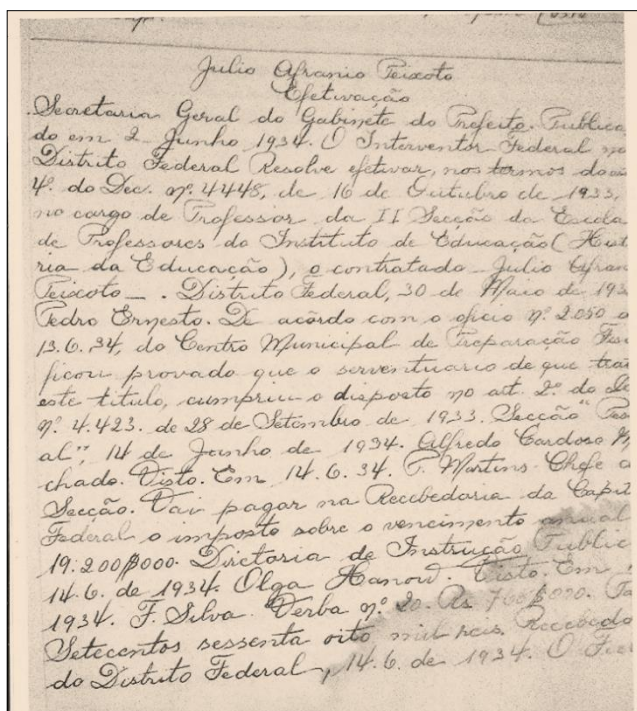 Julio Afranio Peixoto
Efetivação
Secretaria Geral do Gabinete do Prefeito. Publica
do em 2 Junho 1934. O Interventor Federal no
Distrito Federal Resolve efetivar, nos termos do
4º do Dec. nº 4448, de 16 de Outubro de 1933,
no cargo de Professor da II Secção da Escola
de Professores do Instituto de Educação (Histo
ria da Educação), o contratado Julio Afran
Peixoto _ . Distrito Federal, 30 de Maio de 193
Pedro Ernesto. De acôrdo com o oficio nº 2.050
13.6.34, do Centro Municipal de Preparação
ficou provado que o serventuario de que trat
este titulo, cumpriu o disposto no art. 2º do
nº 4.423. de 28 de Setembro de 1933. Secção "Pes
al", 14 de Junho de 1934. Alfredo Cardoso
chado. Visto. Em 14.6.34. P. Martins. Chefe
Secção. Vai pagar na Recebedoria da Capit
Federal o imposto sobre o vencimento anual
19:200$000. Diretoria de Instrução Public
14.6. de 1934. Olga Hanow. Visto. Em
1934. F. Silva. Verba nº 20. Rs. 768$000.
Setecentos sessenta oito mil reis. Recebedo
do Distrito Federal, 14.6. de 1934. O